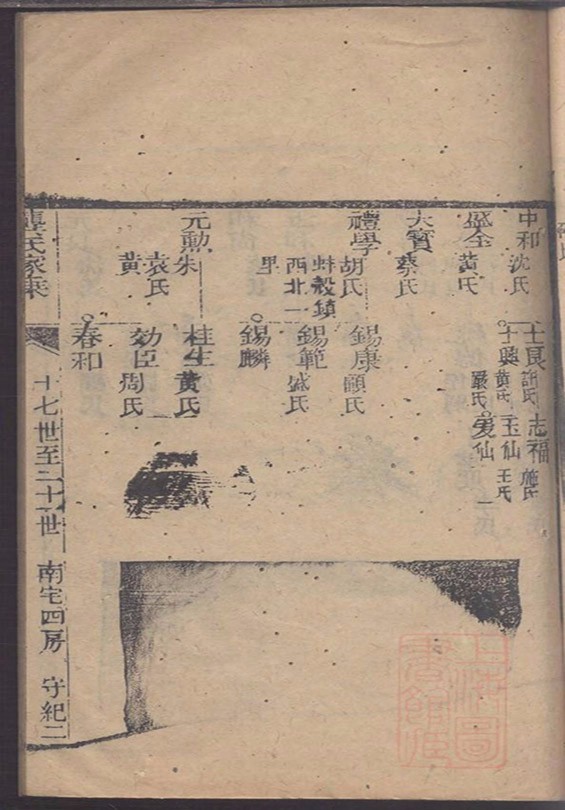 中和 沈氏
士良 謝氏 志福 施氏
士興 黄氏 玉仙 王氏
嚴氏 爱仙
盛全 黄氏
大寳 蔡氏
禮學 胡氏 錫康 顧氏
蚌殼鎮
西北一 錫範 盛氏
里 錫麟
元勲 朱 桂生 黄氏
袁氏
黄 効臣 周氏
春和
龔氏家乗 十七世至二十一世 南宅四房 守紀二